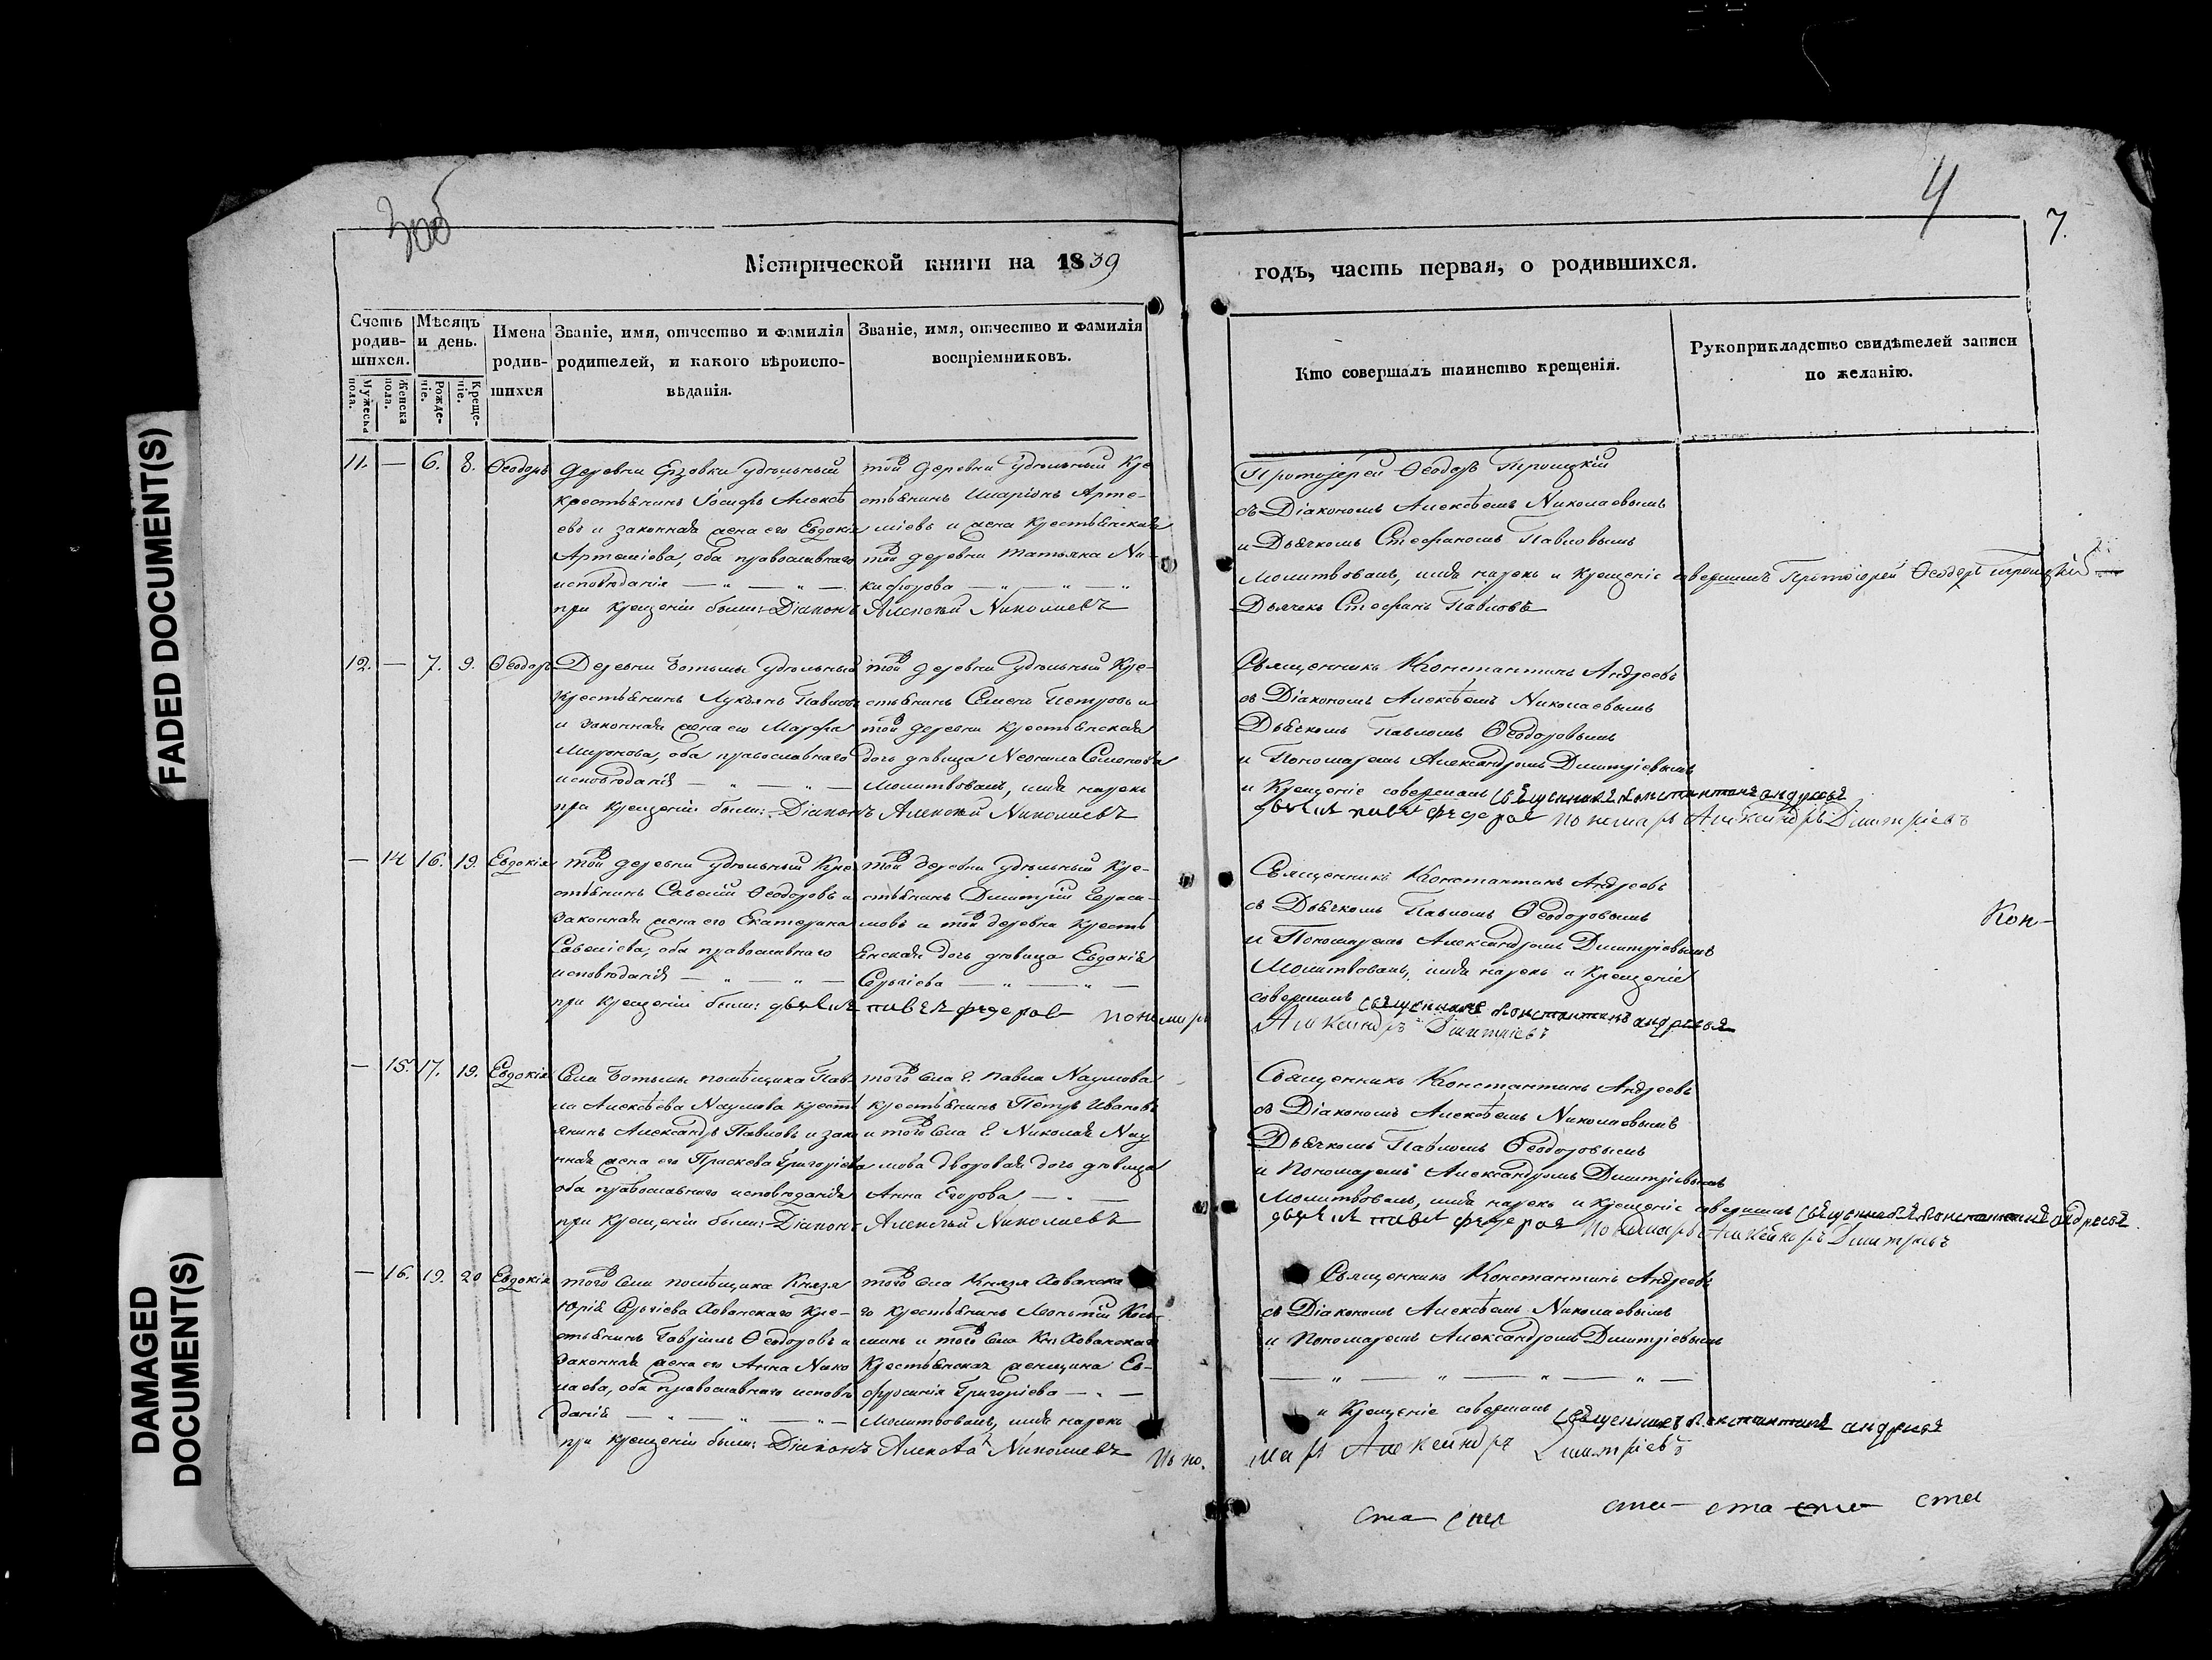 FADED DOCUMENT(S)
DAMAGED
DOCUMENT(S)
3 об
4
7.
Метрической книги на 1839
годъ, часть первая, о родившихся.
Счетъ родив-шихся.
Мужеска пола.
Женска пола.
Мѣсяцъ и день.
Рожде-ніе.
Креще-ніе.
Имена родив-шихся
Званіе, имя, отчество и фамилія родителей, и какого вѣроиспо-вѣданія.
Званіе, имя, отчество и фамилія воспріемниковъ.
Кто совершалъ таинство крещенія.
Рукоприкладство свидѣтелей записи по желанію.
11. — 6. 8. Ѳеодоръ
деревни Ерзовки удѣльный
крестьянинъ Іосифъ Алексѣ
евъ и законная жена его Евдокія
Артеміева, оба православнаго
исповѣданія — „ — „ —
при крещеніи были: Діаконъ Алексѣй Николаевъ
той деревни удѣльный Кре
стьянинъ Иларіонъ Арте-
міевъ и жена крестьянская
той деревни Татьяна Ни-
кифорова — „ — „ — „
Протоіерей Ѳеодоръ Троицкій
съ Діакономъ Алексѣемъ Николаевымъ
и Дьячкомъ Стефаномъ Павловымъ
Молитвовалъ, имя нарекъ и крещеніе совершилъ Протоіерей Ѳеодоръ Троицкій
Дьячекъ Стефанъ Павловъ
12. — 7. 9. Ѳеодоръ
Деревни Ботьмы удѣльный
крестьянинъ Лукьянъ Павловъ
и законная жена его Марфа
Миронова, оба православнаго
исповѣданія — „ — „ —
при крещеніи были: Діаконъ Алексѣй Николаевъ
той деревни удѣльный Кре-
стьянинъ Семенъ Петровъ и
той деревни крестьянская
дочь дѣвица Неонила Семенова
Молитвовалъ, имя нарекъ
Священникъ Константинъ Андреевъ
съ Діакономъ Алексѣемъ Николаевымъ
Дьячкомъ Павломъ Ѳеодоровымъ
и Пономаремъ Александромъ Димитріевымъ
и Крещеніе совершалъ Священникъ Константинъ Андреевъ
дьячекъ Павелъ Федоровъ Пономарь Александръ Димитріевъ
— 14 16. 19. Евдокія
той деревни удѣльный Кре
стьянинъ Савелій Ѳеодоровъ и
законная жена его Екатерина
Савеліева, оба православнаго
исповѣданія — „ — „ —
при крещеніи были: дьячекъ Павелъ Федоровъ Пономарь
той деревни удѣльный Кре-
стьянинъ Димитрій Гераси-
мовъ и той деревни крестья
янская дочь дѣвица Евдокія
Сергіева — „ — „ —
Священникъ Константинъ Андреевъ
съ Дьячкомъ Павломъ Ѳеодоровымъ
и Пономаремъ Александромъ Димитріевымъ
Молитвовалъ, имя нарекъ и Крещеніе
совершалъ Священникъ Константинъ Андреевъ
Александръ Димитріевъ
Кон-
— 15. 17. 19. Евдокія
Села Ботьмы помѣщика Пав-
ла Алексѣева Наумова кресть
янинъ Александръ Павловъ и зако
нная жена его Праскева Григоріева
оба православнаго исповѣданія
при крещеніи были: Діаконъ Алексѣй Николаевъ
того села г. Павла Наумова
крестьянинъ Петръ Ивановъ
и того села г. Николая Нау
мова дворовая дочь дѣвица
Анна Егорова — „ —
Священникъ Константинъ Андреевъ
съ Діакономъ Алексѣемъ Николаевымъ
Дьячкомъ Павломъ Ѳеодоровымъ
и Пономаремъ Александромъ Димитріевымъ
Молитвовалъ, имя нарекъ и крещеніе совершилъ Священникъ Константинъ Андреевъ
дьячекъ Павелъ Федоровъ Пономарь Александръ Димитріевъ
— 16. 19. 20 Евдокія
того села помѣщика Князя
Юрія Сергіева Хованскаго Кре-
стьянинъ Гавріилъ Ѳеодоровъ и
законная жена его Анна Нико
лаева, оба православнаго исповѣ
данія — „ — „ — „ —
при крещеніи были: Діаконъ Алексѣй Николаевъ и поно.
того села Князя Хованска
го крестьянинъ Кось-
минъ и того села Кн. Хованскаго
Крестьянская женщина Ев-
фросинія Григоріева — „ —
Молитвовалъ, имя нарекъ
Священникъ Константинъ Андреевъ
съ Діакономъ Алексѣемъ Николаевымъ
и Пономаремъ Александромъ Димитріевымъ
— „ — „ — „ — „ —
и Крещеніе совершалъ Священникъ Константинъ Андреевъ
марь Александръ Димитріевъ
ста ста ста ста ста ста